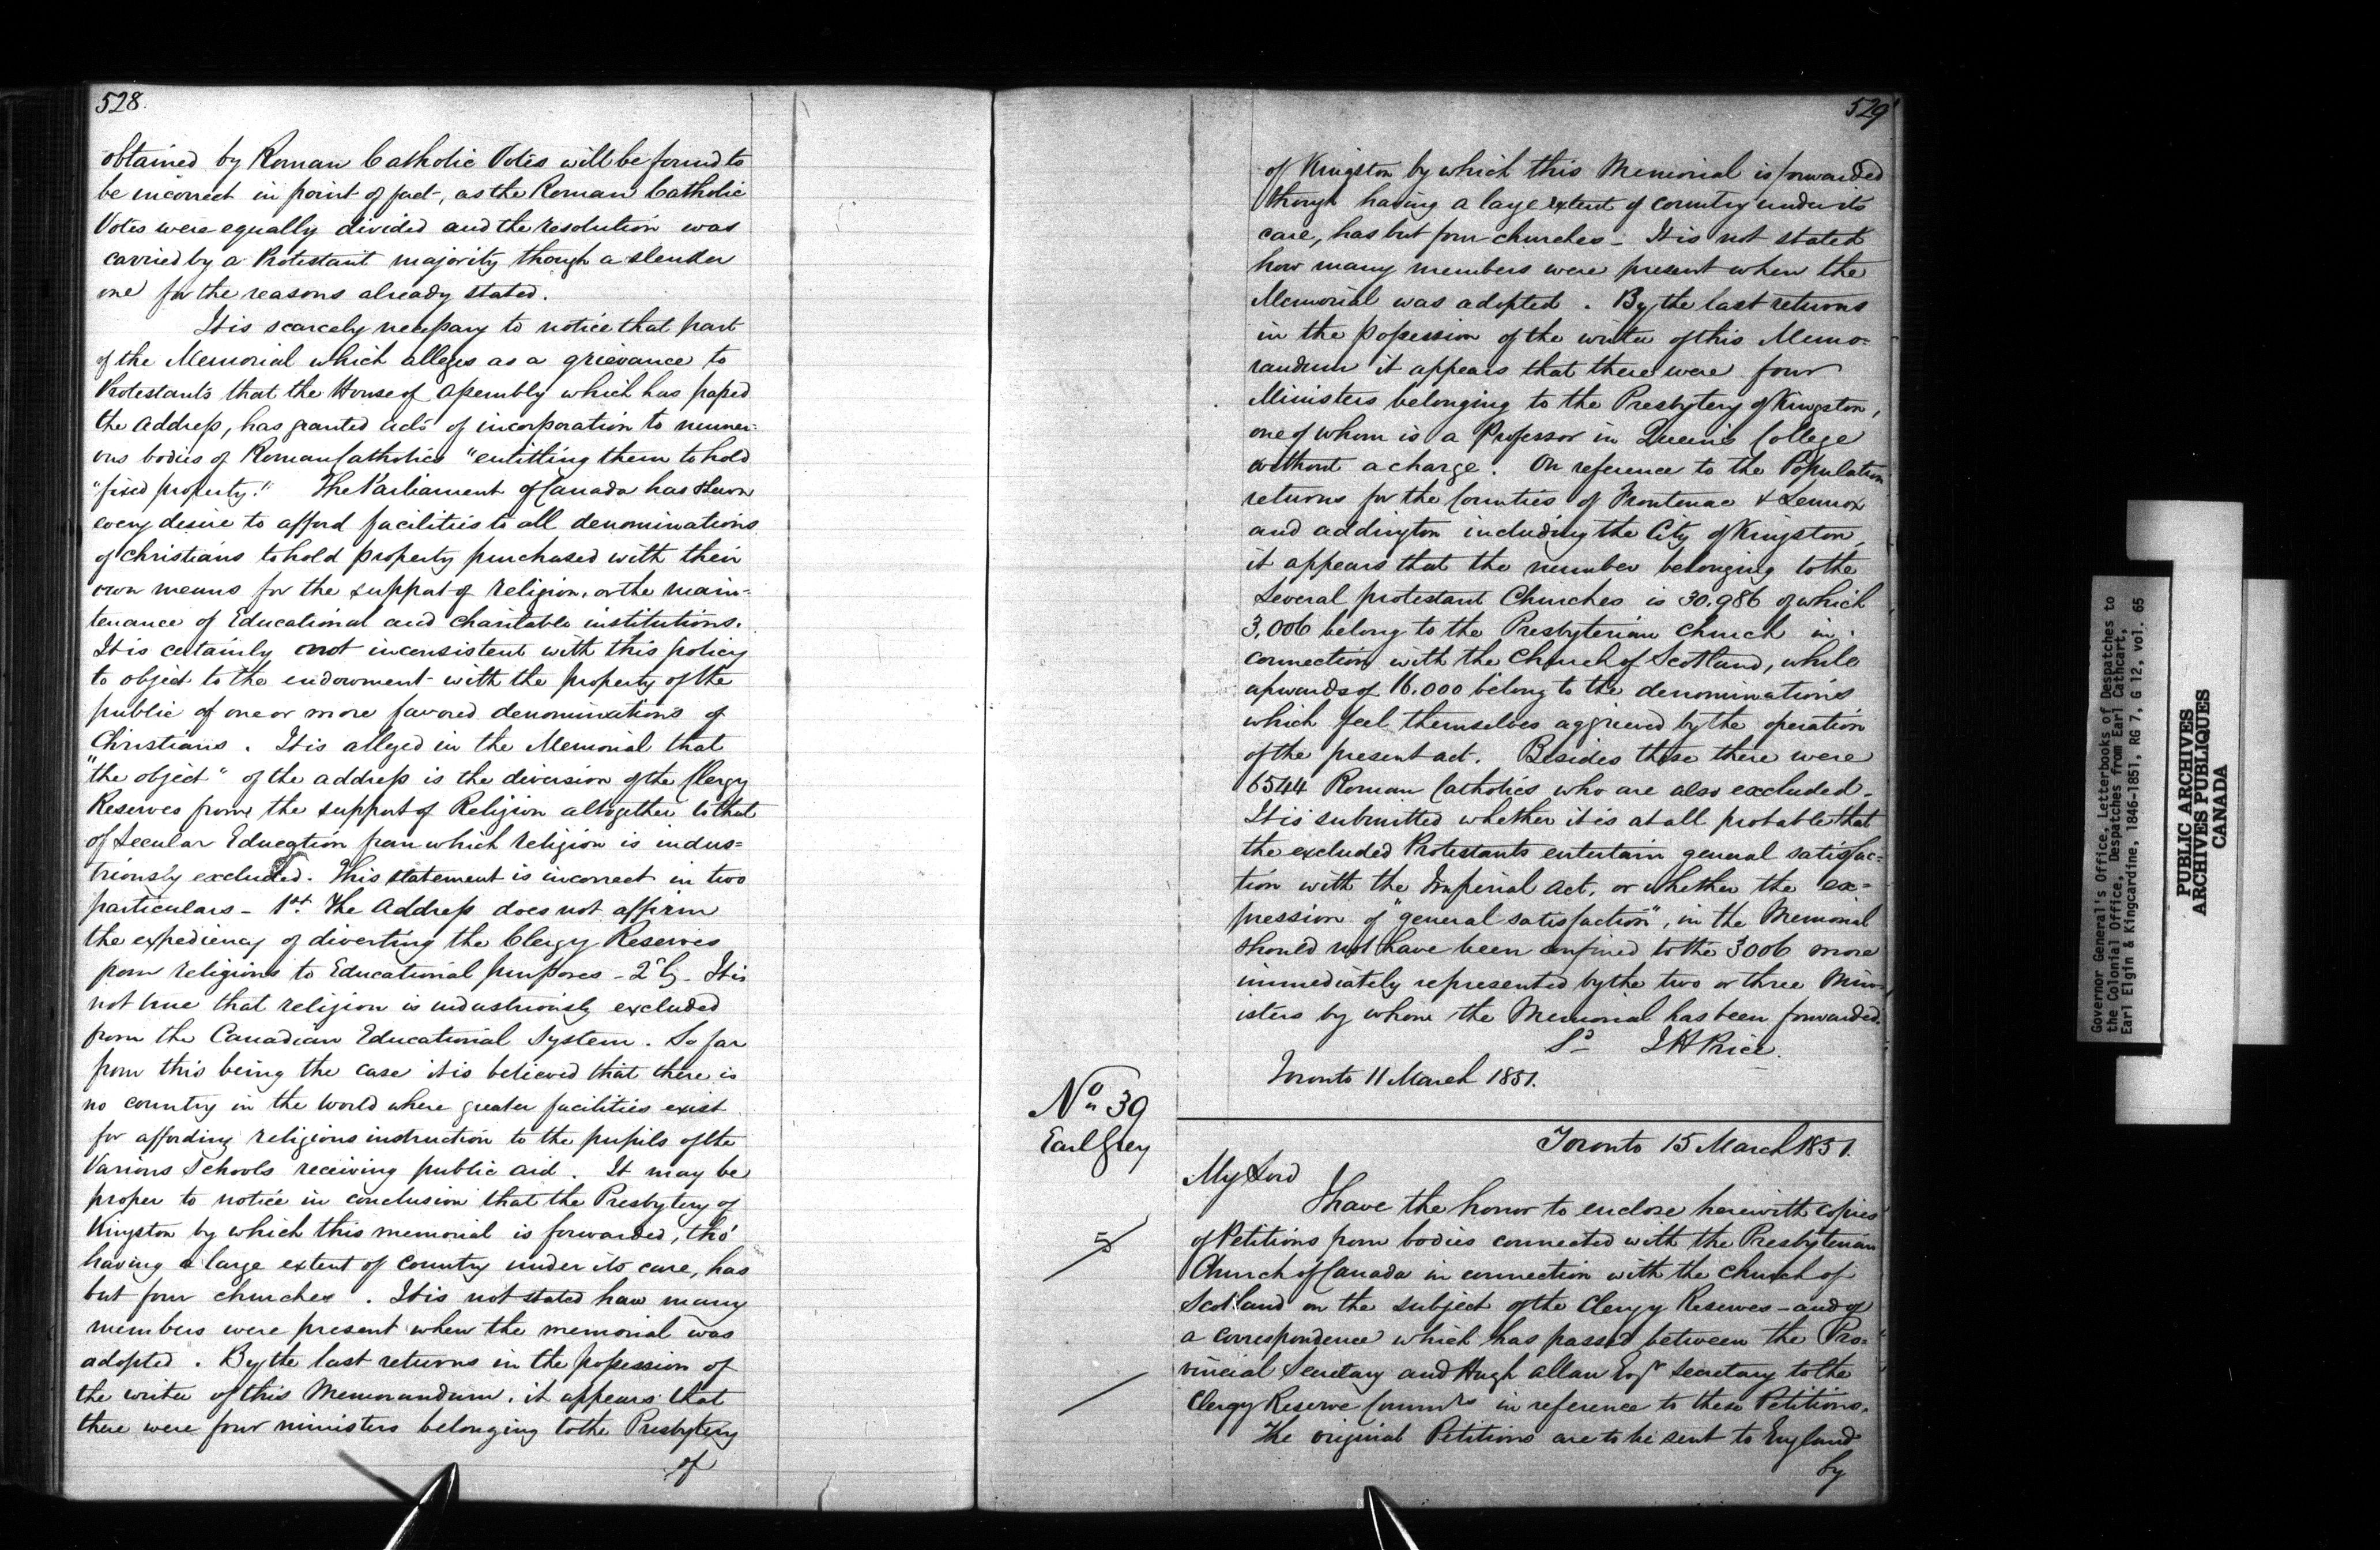 528.
obtained by Roman Catholic Votes will be found to
be incorrect in point of fact, as the Roman Catholic
Votes were equally divided and the resolution was
carried by a Protestant majority though a slender
one for the reasons already stated.
It is scarcely necessary to notice that part
of the Memorial which alleges as a grievance to
Protestants that the House of Assembly which has passed
the Address, has granted acts of incorporation to numer-
ous bodies of Roman Catholics "entitling them to hold
"fixed property." The Parliament of Canada has shewn
every desire to afford facilities to all denominations
of Christians to hold property purchased with their
own means for the support of religion, or the main-
tenance of Educational and charitable institutions.
It is certainly not inconsistent with this policy
to object to the endowment with the property of the
public of one or more favored denominations of
Christians. It is alleged in the Memorial that
"the object" of the address is the diversion of the Clergy
Reserves from the support of Religion altogether to that
of Secular Education from which religion is indus=
triously excluded. This statement is incorrect in two
particulars - 1st. The Address does not affirm
the expediency of diverting the Clergy Reserves
from religious to Educational purposes - 2dly - It is
not true that religion is industriously excluded
from the Canadian Educational System. So far
from this being the case it is believed that there is
no country in the World where greater facilities exist
for affording religious instruction to the pupils of the
Various Schools receiving public aid. It may be
proper to notice in conclusion that the Presbytery of
Kingston by which this memorial is forwarded, tho'
having a large extent of country under its care, has
but four churches. It is not stated how many
members were present when the memorial was
adopted. By the last returns in the possession of
the writer of this Memorandum, it appears that
there were four ministers belonging to the Presbytery
of
529
of Kingston by which this Memorial is forwarded
though having a large extent of country under its
care, has but four churches - It is not stated
how many members were present when the
Memorial was adopted. By the last returns
in the possession of the writer of this Memo=
randum it appears that there were four
Ministers belonging to the Presbytery of Kingston,
one of whom is a Professor in Queen's College
without a charge. On reference to the Population
returns for the Counties of Frontenac & Lennox
and addington including the City of Kingston,
it appears that the number belonging to the
Several protestant Churches is 30,986 of which
3,006 belong to the Presbyterian Church in
connection with the Church of Scotland, while
upwards of 16.000 belong to the denominations
which feel themselves aggrieved by the operation
of the present act. Besides these there were
6544 Roman Catholics who are also excluded.
It is submitted whether it is at all probable that
the excluded Protestants entertain general satisfac=
tion with the Imperial Act, or whether the ex=
pression of "general satisfaction", in the Memorial
should not have been confined to the 3006 more
immediately represented by the two or three Min-
isters by whom the Memorial has been forwarded.
Sd J H Price.
Toronto 11 March 1851.
No. 39
Earl Grey
Toronto 15 March 1851.
My Lord
I have the honor to enclose herewith copies
5
of Petitions from bodies connected with the Presbyterian
Church of Canada in connection with the Church of
Scotland on the subject of the Clergy Reserves - and of
a correspondence which has passed between the Pro-
vincial Secretary and Hugh Allan Esqr Secretary to the
Clergy Reserve Commrs in reference to these Petitions.
The original Petitions are to be sent to England
by
Governor General's Office, Letterbooks of Despatches to
the Colonial Office, Despatches from Earl Cathcart,
Earl Elgin & Kingcardine, 1846-1851, RG 7, G 12, vol. 65
PUBLIC ARCHIVES
ARCHIVES PUBLIQUES
CANADA